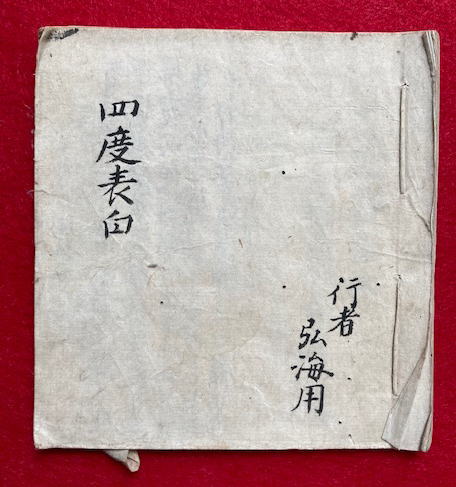 四度表白
行者
弘海用